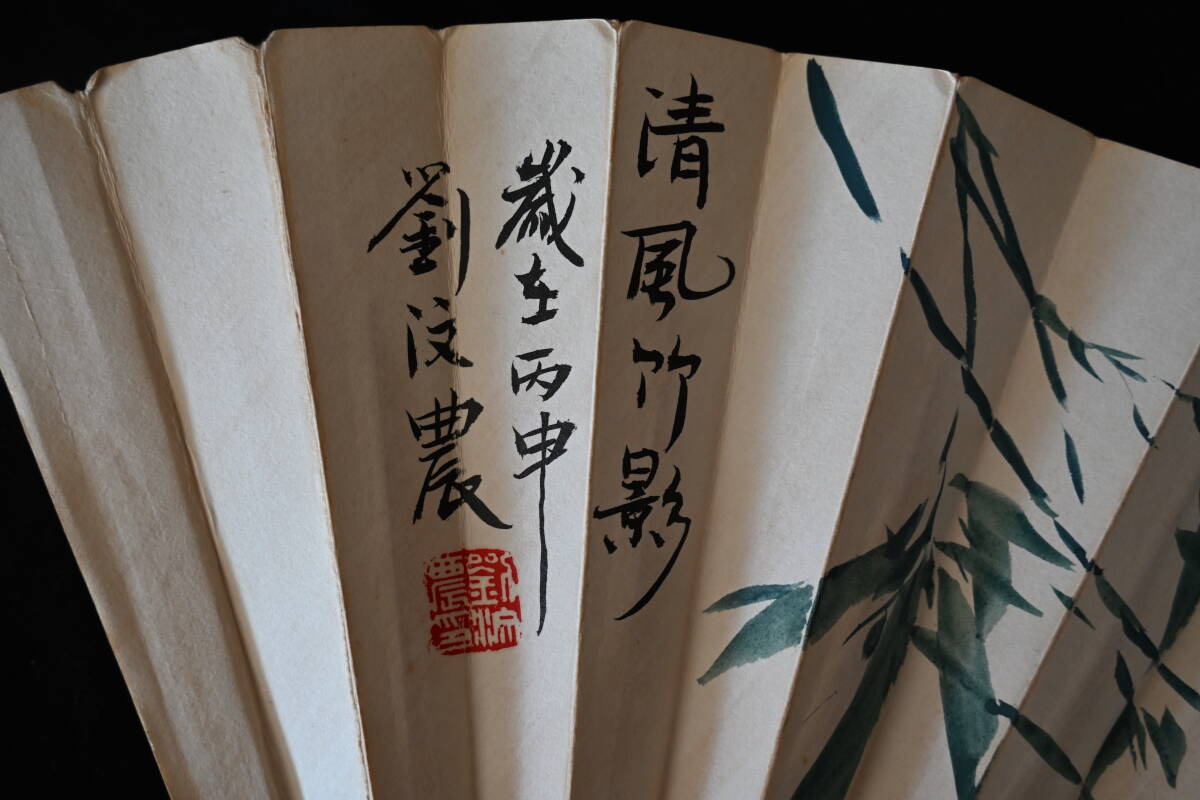 清風竹影
歲在丙申
劉農
劉農印